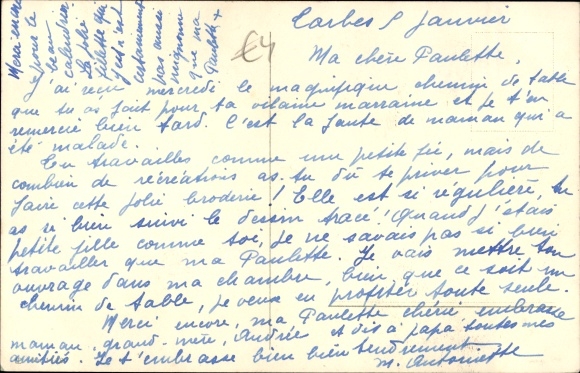 Tarbes 8 Janvier
Ma chère Paulette,
J'ai reçu mercredi le magnifique chemin de table
que tu as fait pour ta vilaine marraine et je t'en
remercie bien tard. C'est la faute de maman qui a
été malade.
Tu travailles comme une petite fée, mais de
combien de récréations as-tu dû te priver pour
faire cette jolie broderie! Elle est si régulière, tu
as si bien suivi le dessin tracé! Quand j'étais
petite fille comme toi, je ne savais pas si bien
travailler que ma Paulette. Je vais mettre ton
ouvrage dans ma chambre, bien que ce soit un
chemin de table, je veux en profiter toute seule.
Merci encore, ma Paulette chérie embrasse
maman, grand-mère, Andrée et dis à papa toutes mes
amitiés. Je t'embrasse bien bien tendrement.
M. Antoinette
Merci encore
pour le
beau
calendrier
La jolie
fillette qui
y est n'est
certainement
pas aussi
mignonne
que ma
Paulette
£4